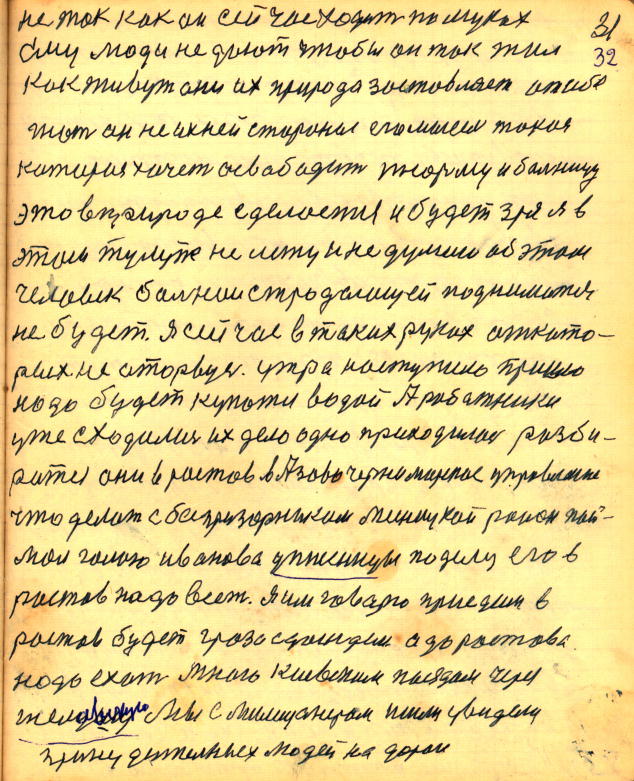 31
не так как он сейчас ходит по муках
32
ему люди не дают чтобы он так жил
как живут они их природа заставляет
жот он не ихней стороны его мысел такая
каторая хочет освабадит тюрьму и балницу
это в природе сделается и будет зря я в
этом тулупе не лежу и не думаю об этом
человек балной страдающей подниматся
не будет. Я сейчас в таких руках от като-
рых не оторвуся. утра наступило пришло
надо будет купати водой А работники
уже сходилися их дело одно приходилос разби-
ратся они в ростов в Азово черниморское управление
что делат с безпризорником Милицкой район пой-
мал голаю иванова поделу его в
ростов надо везт. Я им говарю приедим в
ростов будет гроза с дождем а до ростова
надо ехат много Киевским поездам через
мы с милицанером шли увидели
дителных людей на дороги